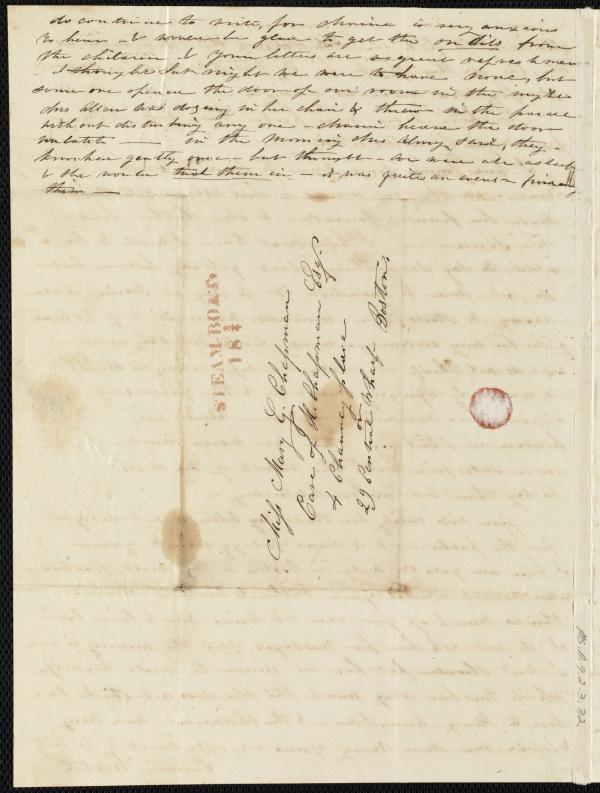 do continue to write, for Maria is very anxious
to hear - & would be glad to get the on dits from
the children & your letters are a great refreshment
I thought last night we were to have none, but
some one opened the door of our room in the night
Mrs Allen was dozing in her chair & threw in the parcel
without disturbing any one - heard the door
- in the morning Mrs said, they
knocked gently once - but thought - we were all asleep
& she would them in - it was quite an event - finding
them -
STEAM-BOAT
18¾
Miss Mary G. Chapman
Care of H. Chapman Esq.
4 Chauncy place
or
29 Central Wharf Boston
Ms. A.9.2.3.22